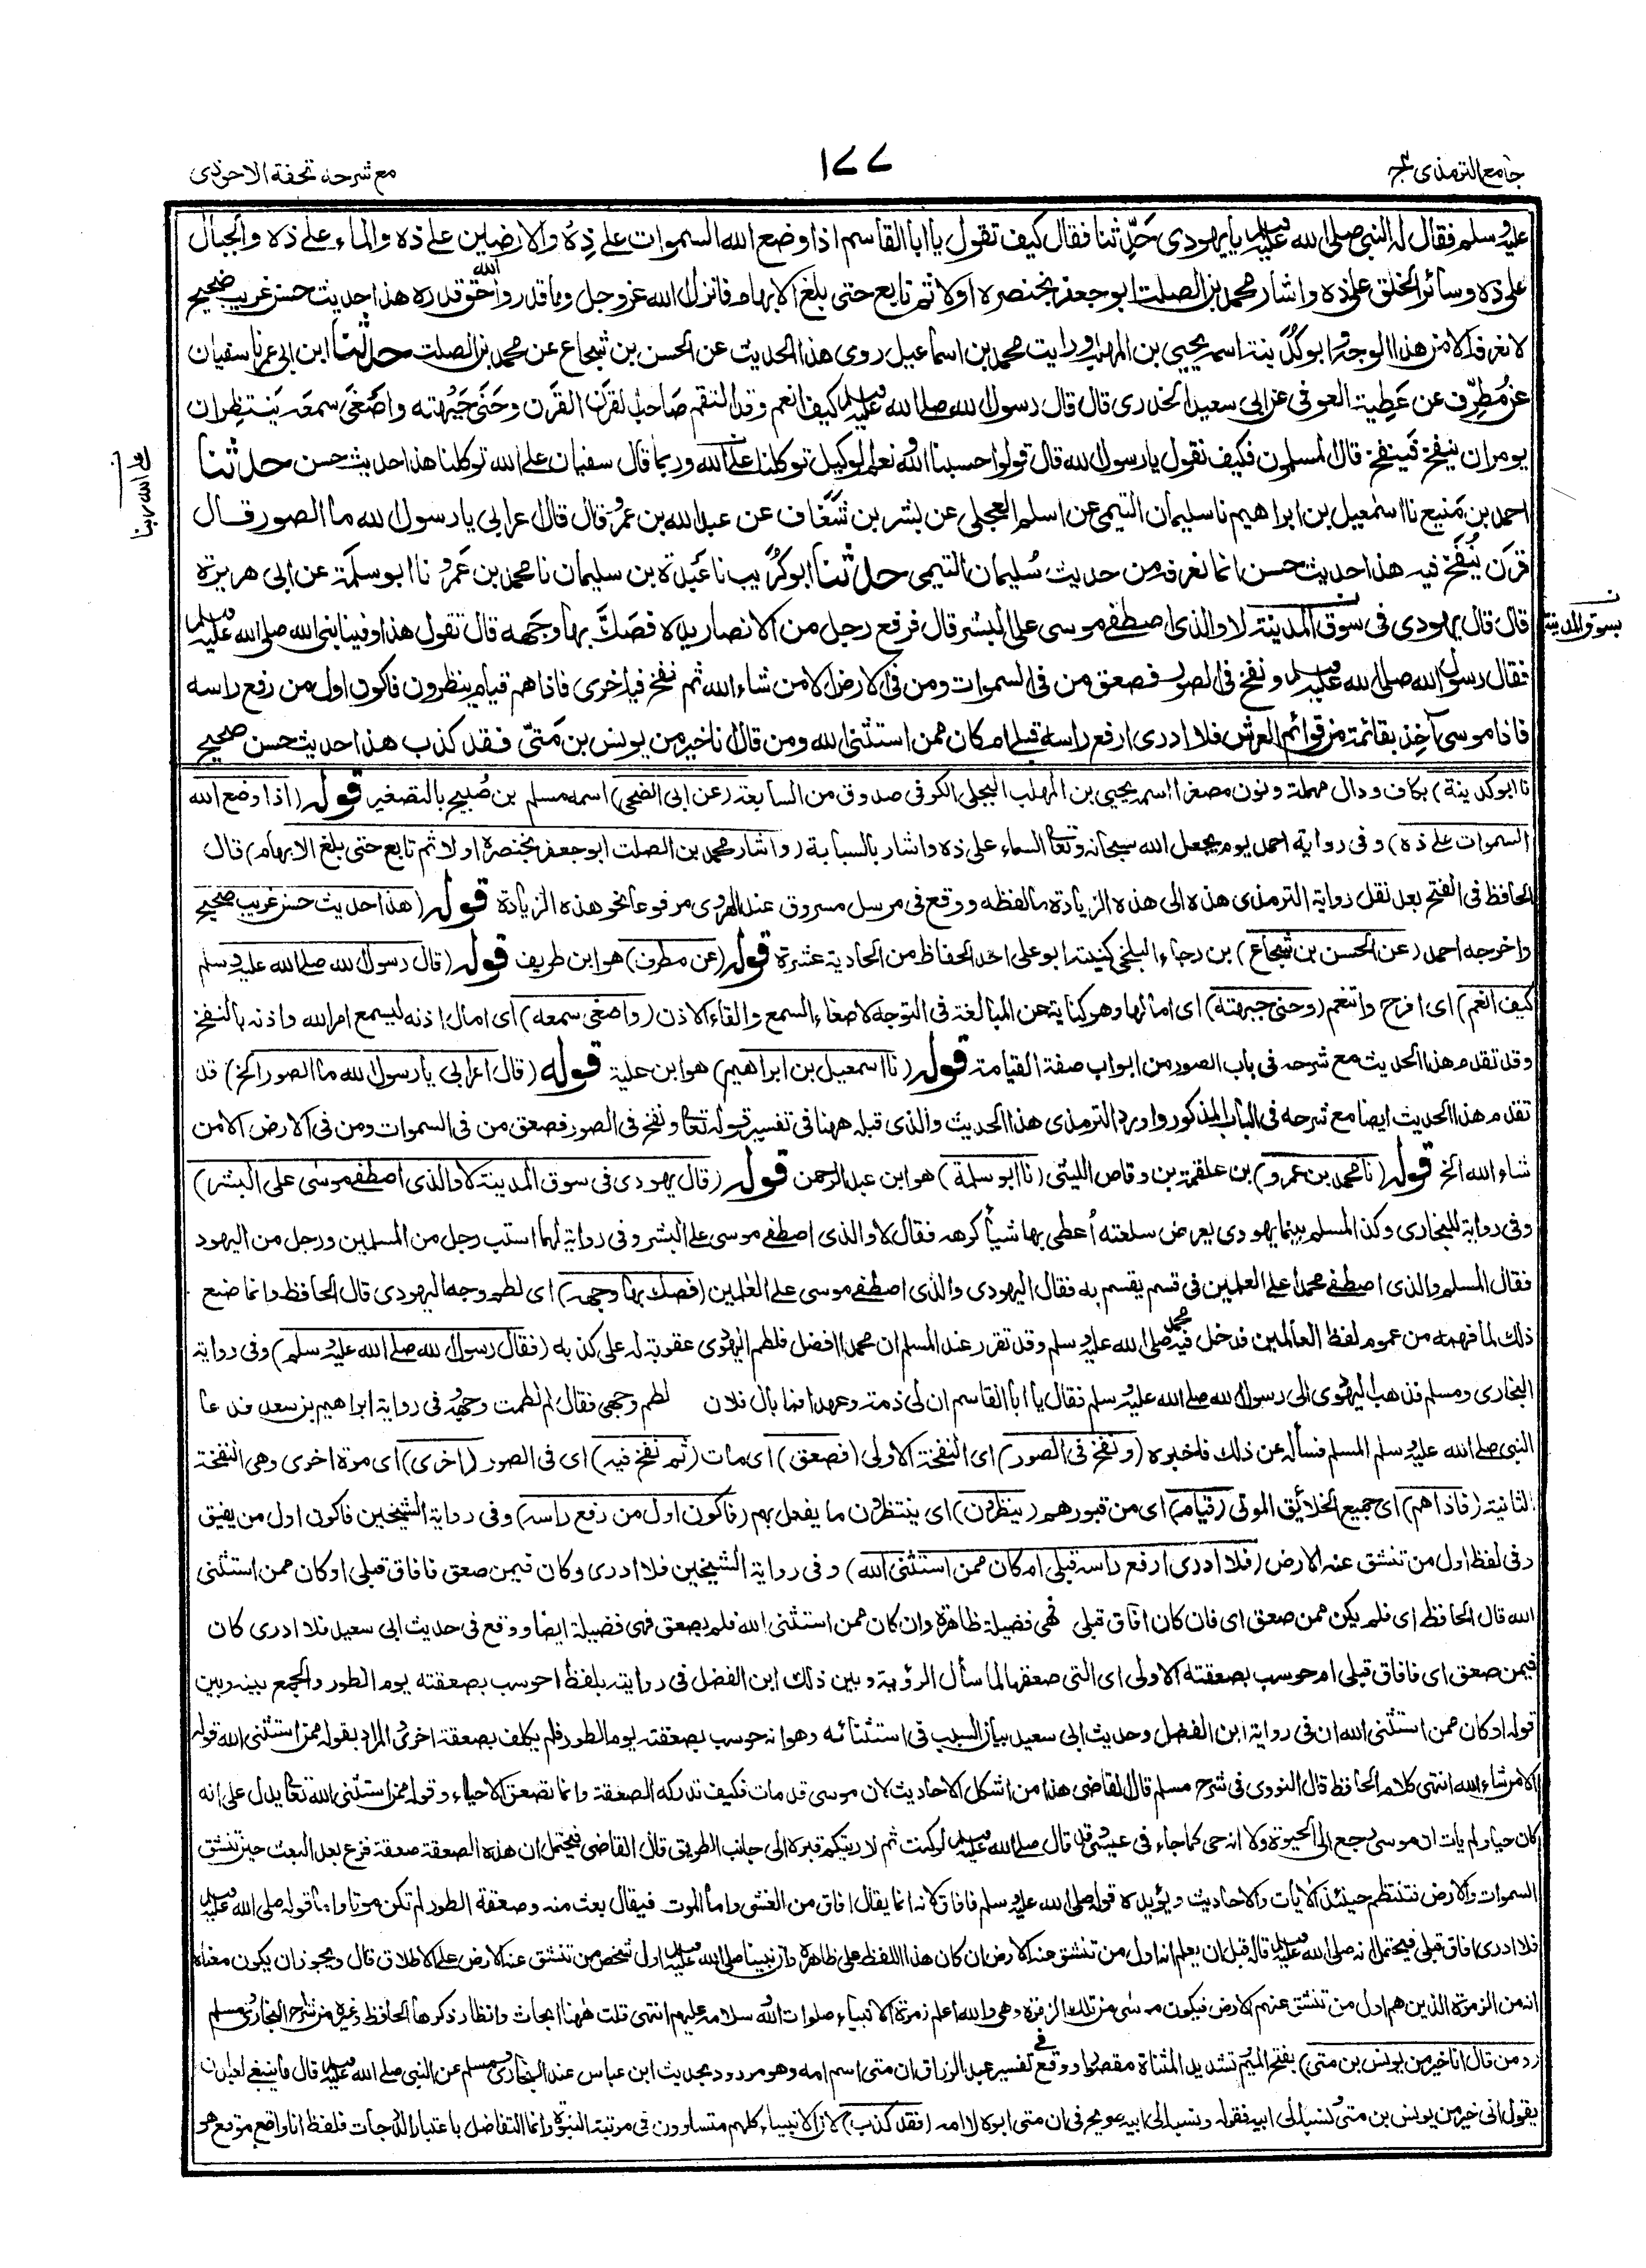 جامع الترمذی ج۴
١٧٧
مع شرحه تحفة الاحوذی
عليه وسلم فقال له النبي صلى الله عليه وسلم يا يهودي حَدِّثنا فقال كيف تقول يا ابا القاسم اذا وضع الله السموات على ذِهْ والارضين على ذه والماء على ذه والجبال
على ذه وسائر الخلق على ذه واشار محمد بن الصلت ابو جعفر بخنصره اولا ثم تابع حتى بلغ الابهام فانزل الله عز وجل وما قدروا الله حق قدره هذا حديث حسن غريب صحيح
لا نعرفه الا من هذا الوجه وابو كُدَينة اسمه يحيى بن المهلب ورايت محمد بن اسماعيل روى هذا الحديث عن الحسن بن شجاع عن محمد بن الصلت حدثنا ابن ابي عمر نا سفيان
عن مُطرِّف عن عَطِية العوفي عن ابي سعيد الخدري قال قال رسول الله صلى الله عليه وسلم كيف انعم وقد التقم صَاحب القَرن القَرن وحَنى جَبْهته واصَغىٰ سمعَه يَنتظِر ان
يومر ان ينفخ فَينفخ قال المسلمون فكيف نقول يا رسول الله قال قولوا حسبنا الله ونعم الوكيل توكلنا على الله وربما قال سفيان على الله توكلنا هذا حديث حسن حدثنا
على الله ربنا
احمد بن مَنيع نا اسمٰعيل بن ابراهيم نا سليمان التيمي عن اسلم العجلي عن بشر بن شَغَاف عن عبد الله بن عمرو قال قال اعرابي يا رسول الله ما الصور قال
قرن يُنفَخ فيه هذا حديث حسن انما نعرفه من حديث سُليمان التيمي حدثنا ابو كُرَيب نا عَبدة بن سليمان نا محمد بن عَمرو نا ابو سلَمة عن ابي هريرة
قال قال يهودي في سوق المدينة لا والذي اصطفى موسى على البشر قال فرفع رجل من الانصار يده فصَكَّ بها وجهه قال تقول هذا وفينا نبي الله صلى الله عليه وسلم
بسوق المدينة
فقال رسول الله صلى الله عليه وسلم ونفخ في الصور فصعق من في السموات ومن في الارض الا من شاء الله ثم نفخ فيه اخرى فاذا هم قيام ينظرون فاكون اول من رفع راسه
فاذا موسى آخِذ بقائمة من قوائم العرش فلا ادري ارفع راسه قبلي ام كان ممن استثنى الله ومن قال انا خير من يونس بن مَتىّ فقد كذب هذا حديث حسن صحيح
نا ابو كدينة) بكاف ودال مهملة ونون مصغرا اسمه يحيى بن المهلب البجلي الكوفي صدوق من السابعة (عن ابي الضحى) اسمه مسلم بن صُبيح بالتصغير قوله (اذا وضع الله
السموات على ذه) وفي رواية احمد يوم يجعل الله سبحانه وتعالى السماء على ذه واشار بالسبابة (واشار محمد بن الصلت ابو جعفر بخنصره اولا ثم تابع حتى بلغ الابهام) قال
الحافظ في الفتح بعد نقل رواية الترمذي هذه الى هذه الزيادة ما لفظه ووقع في مرسل مسروق عند الهروي مرفوعا نحو هذه الزيادة قوله (هذا حديث حسن غريب صحيح
واخرجه احمد (عن الحسن بن شجاع) بن رجاء البلخي كنيته ابو علي احد الحفاظ من الحادية عشرة قوله (عن مطرف) هو ابن طريف قوله (قال رسول الله صلى الله عليه وسلم
كيف انعم) اى افرح واتنعم (وحنى جبهته) اى امالها وهو كناية عن المبالغة في التوجه لاصغاء السمع والقاء الاذن (واصغى سمعه) اى امال اذنه ليسمع امر الله واذنه بالنفخ
وقد تقدم هذا الحديث مع شرحه في باب الصور من ابواب صفة القيامة قوله (نا اسمعيل بن ابراهيم) هو ابن علية قوله (قال اعرابي يا رسول الله ما الصور الخ) قد
تقدم هذا الحديث ايضا مع شرحه في الباب المذكور واورد الترمذي هذا الحديث والذي قبله ههنا في تفسير قوله تعالى ونفخ في الصور فصعق من في السموات ومن في الارض الا من
شاء الله الخ قوله (نا محمد بن عمرو) بن علقمة بن وقاص الليثي (نا ابو سلمة) هو ابن عبد الرحمن قوله (قال يهودي في سوق المدينة لا والذي اصطفى موسى على البشر)
وفي رواية للبخاري وكذا لمسلم بينما يهودي يعرض سلعته اُعطي بها شيأ كرهه فقال لا والذي اصطفى موسى على البشر وفي رواية لهما استب رجل من المسلمين ورجل من اليهود
فقال المسلم والذي اصطفى محمدا على العلمين في قسم يقسم به فقال اليهودي والذي اصطفى موسى على العلمين (فصك بها وجهه) اى لطم وجه اليهودي قال الحافظ وانما صنع
ذلك لما فهمه من عموم لفظ العالمين فدخل فيه محمد صلى الله عليه وسلم وقد تقرر عند المسلم ان محمدا افضل فلطم اليهودي عقوبة له على كذبه (فقال رسول الله صلى الله عليه وسلم) وفي رواية
البخاري ومسلم فذهب اليهودي الى رسول الله صلى الله عليه وسلم فقال يا ابا القاسم ان لي ذمة وعهدا فما بال فلان لطم وجهي فقال لم لطمت وجهه في رواية ابراهيم بن سعد فدعا
النبي صلى الله عليه وسلم المسلم فسأله عن ذلك فاخبره (ونفخ في الصور) اى النفخة الاولى (فصعق) اى مات (ثم نفخ فيه) اى في الصور (اخرى) اى مرة اخرى وهي النفخة
الثانية (فاذا هم) اى جميع الخلائق الموتى (قيام) اى من قبورهم (ينظرون) اى ينتظرون ما يفعل بهم (فاكون اول من رفع راسه) وفي رواية الشيخين فاكون اول من يفيق
وفي لفظ اول من تنشق عنه الارض (فلا ادري ارفع راسه قبلي ام كان ممن استثنى الله) وفي رواية الشيخين فلا ادري وكان فيمن صعق فافاق قبلي او كان ممن استثنى
الله قال الحافظ اى فلم يكن ممن صعق اى فان كان افاق قبلي فهي فضيلة ظاهرة وان كان ممن استثنى الله فلم يصعق فهي فضيلة ايضا ووقع في حديث ابي سعيد فلا ادري كان
فيمن صعق اى فافاق قبلي ام حوسب بصعقته الاولى اى التي صعقها لما سأل الرؤية وبين ذلك ابن الفضل في روايته بلفظ احوسب بصعقته يوم الطور والجمع بينه وبين
قوله او كان ممن استثنى الله ان في رواية ابن الفضل وحديث ابي سعيد بيان السبب في استثنائه وهو انه حوسب بصعقته يوم الطور فلم يكلف بصعقة اخرى والمراد بقوله ممن استثنى الله قوله
الا من شاء الله انتهى كلام الحافظ قال النووي في شرح مسلم قال القاضي هذا من اشكل الاحاديث لان موسى قد مات فكيف تدركه الصعقة وانما تصعق الاحياء وقوله ممن استثنى الله تعالى يدل على انه
كان حيا ولم يات ان موسى رجع الى الحيوة ولا انه حى كما جاء في عيسى وقد قال صلى الله عليه وسلم لو كنت ثم لاريتكم قبره الى جانب الطريق قال القاضي فيحتمل ان هذه الصعقة صعقة فزع بعد البعث حين تنشق
السموات والارض فتنتظم حينئذ الآيات والاحاديث ويؤيده قوله صلى الله عليه وسلم فافاق لانه انما يقال افاق من الغشي واما الموت فيقال بعث منه وصعقة الطور لم تكن موتا واما قوله صلى الله عليه وسلم
فلا ادري افاق قبلي فيحتمل انه صلى الله عليه وسلم قاله قبل ان يعلم انه اول من تنشق عنه الارض ان كان هذا اللفظ على ظاهره وان نبينا صلى الله عليه وسلم اول شخص من تنشق عنه الارض على الاطلاق قال ويجوز ان يكون معناه
انه من الزمرة الذين هم اول من تنشق عنهم الارض فيكون موسى من تلك الزمرة وهي والله اعلم زمرة الانبياء صلوات الله وسلامه عليهم انتهى قلت ههنا ابحاث وانظار ذكرها الحافظ وغيره من شراح البخاري ومسلم
(ومن قال انا خير من يونس بن متى) بفتح الميم وتشديد المثناة مقصورا ووقع في تفسير عبد الرزاق ان متى اسم امه وهو مردود بحديث ابن عباس عند البخاري ومسلم عن النبي صلى الله عليه وسلم قال ما ينبغي لعبد ان
يقول اني خير من يونس بن متى ونسبه الى ابيه فقوله ونسبه الى ابيه صريح في ان متى ابوه لا امه (فقد كذب) لان الانبياء كلهم متساوون في مرتبة النبوة وانما التفاضل باعتبار الدرجات فلفظ انا واقع موقع هو